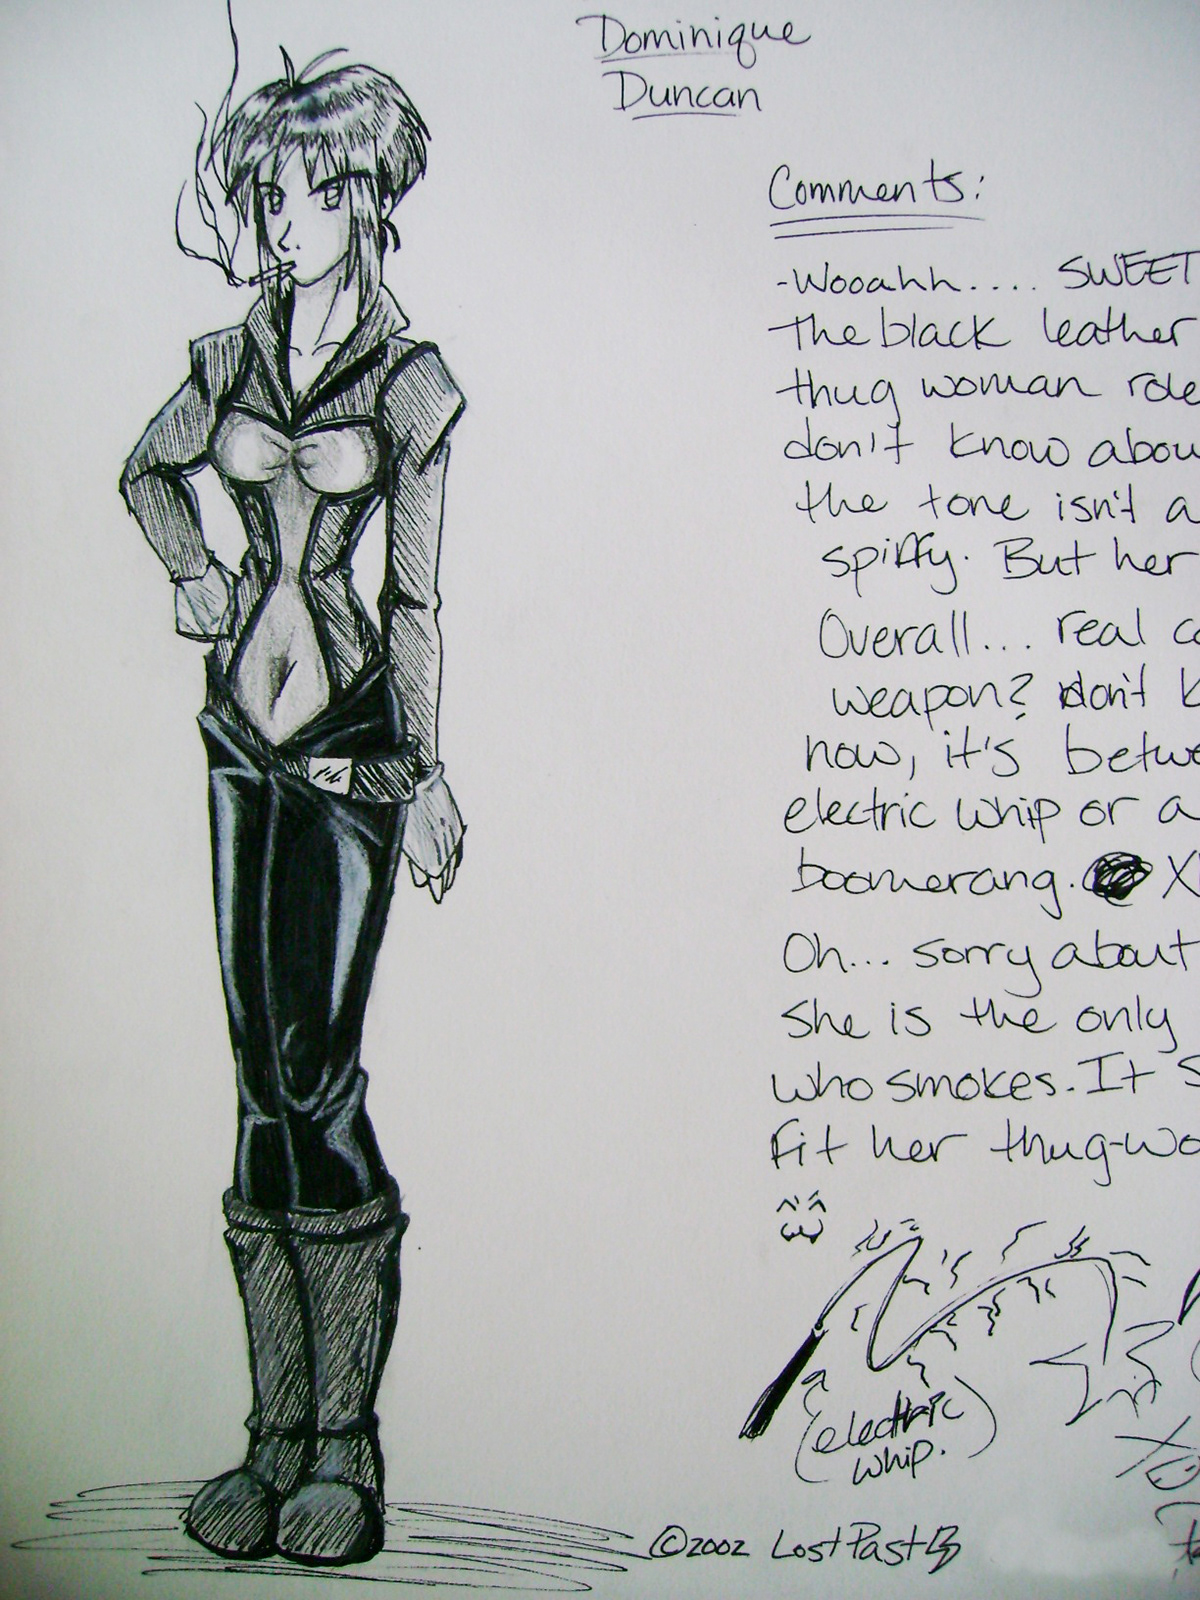 Dominique
Duncan
Comments:
-Wooahh.... SWEET
The black leather
thug woman role
don't know abou
the tone isn't a
spiffy. But her
Overall... real co
weapon? don't k
now, it's betwe
electric whip or a
boomerang. X
Oh... sorry about
she is the only
who smokes. It s
fit her thug-wo
(electric
whip.)
©2002 LostPast